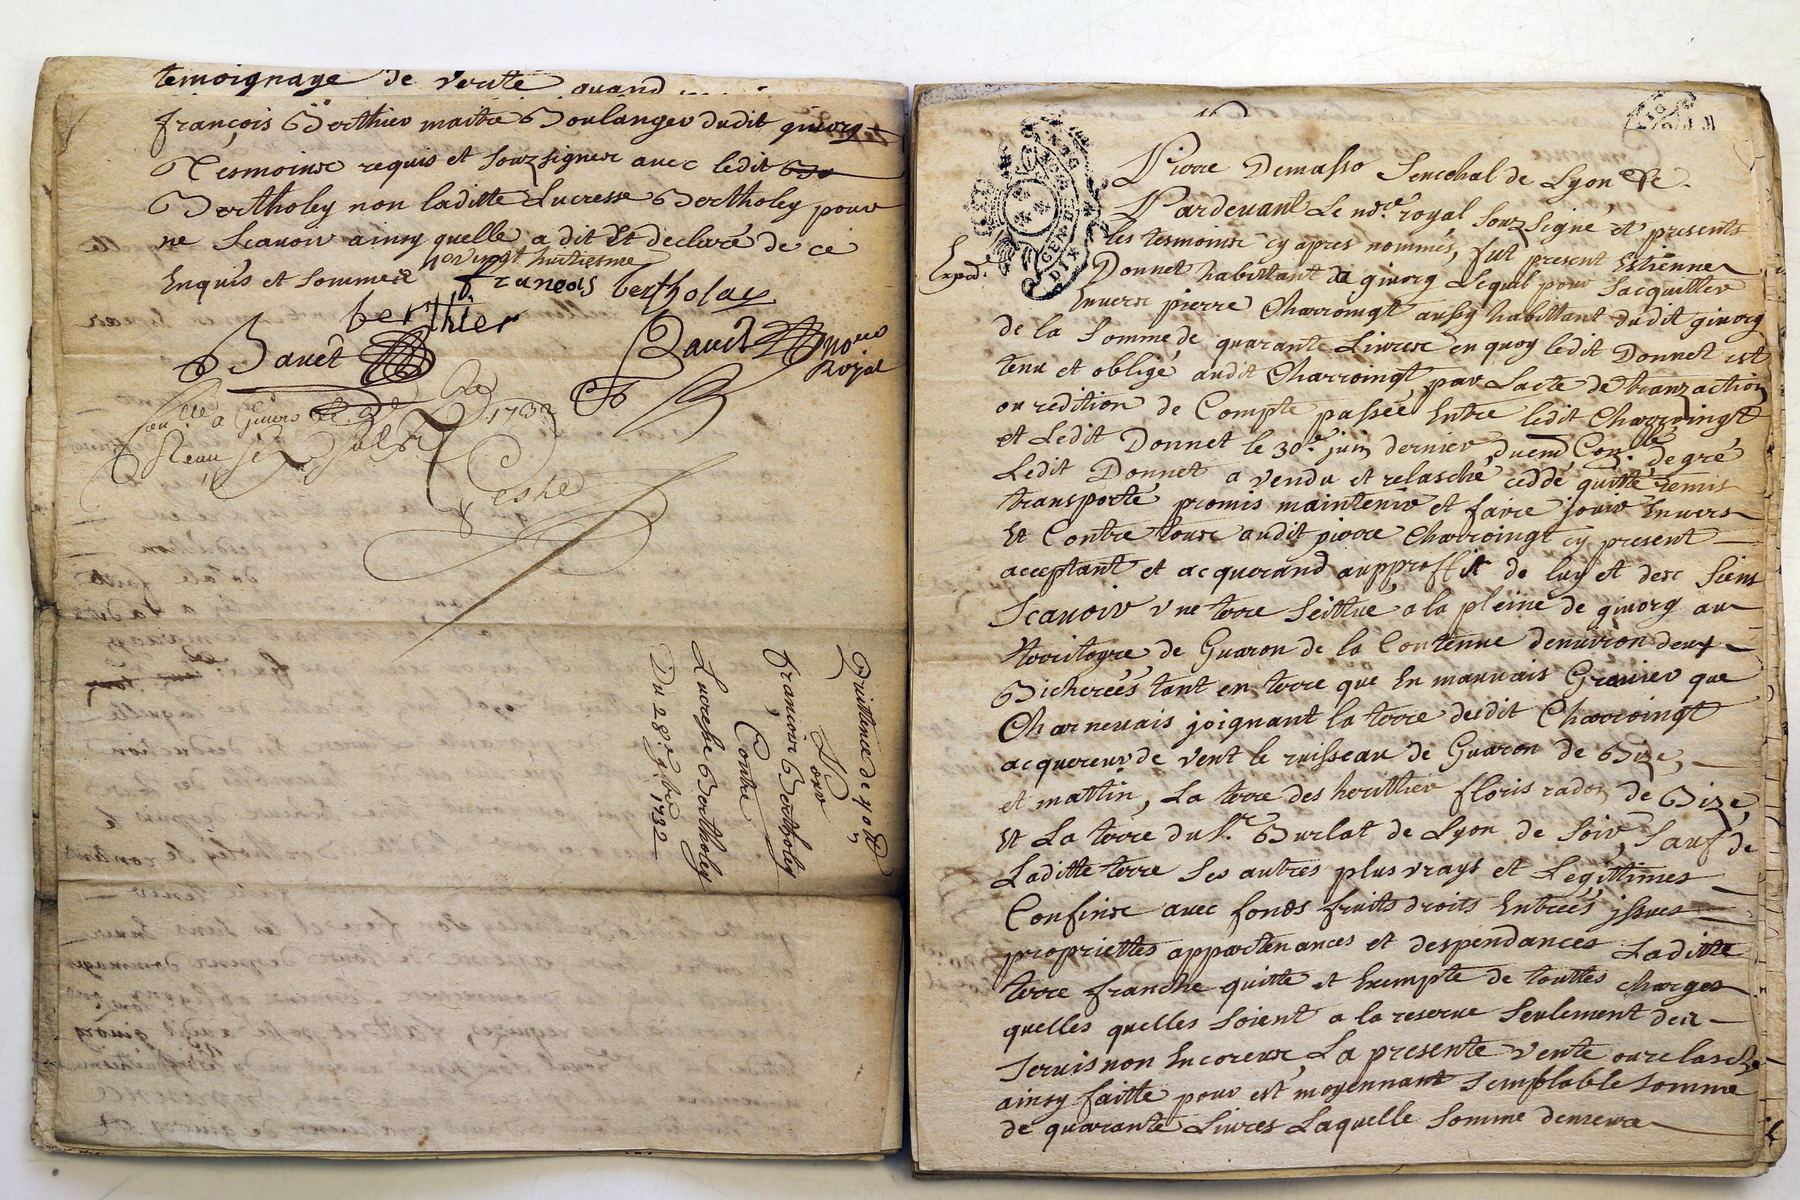 temoignage de verite quand
françois Berthier maitre Boulanger dudit givorg
Tesmoinx requis et souzsignez avec ledit
Bertholey non laditte Lucresse Bertholey pour
ne scavoir ainsy quelle a dit Et declaré de ce
Enquis et sommeé
vingt huitiesme
françois bertholay
berthier
Bauet
Bauet
Royal
a Givors
1732
Quittance de 40 ₶
Pour
françois Bertholey
Contre
Lucresse Bertholey
Du 28e 9bre 1732
Pierre Demasso Senechal de Lyon
Pardevant Le nore royal souzsigné et presents
les tesmoinx cy apres nommés, fut present Estienne
Exped.
Donnet habittant a givorg Lequel pour sacquitter
Envers pierre Charroingt aussy habittant dudit givorg
de la somme de quarante Livres en quoy ledit Donnet est
tenu et obligé audit Charroingt par Lacte de tranzaction
ou redition de Compte passée Entre ledit Charroingt
et Ledit Donnet le 30e juin dernier, de gré
Ledit Donnet a vendu et relasché ceddé quitté remis
transporté promis maintenir et faire jouir Envers
Et Contre tous audit pierre Charroingt cy present
acceptant et acquerand auproffit de luy et des siens
Scavoir une terre scittué a la pleine de givorg au
territoyre de Guaron de la Contenue denviron deux
Bicherées tant en terre que En mauvais Gravier que
Charnevais joignant la terre dudit Charroingt
acquereur de vent le ruisseau de Guaron de Bize,
et mattin, La terre des herittier floris radoz de Bize
Et La terre du Sr. Burlat de Lyon de soir, sauf de
Laditte terre ses autres plus vrays et Legittimes
Confins avec fonds fruits droits Entreés jssues
propriettes appartenances et despendances Laditte
terre franche quitte et Exempte de touttes charges
quelles quelles soient a la reserve seulement des
servis non Encoreux, La presente vente ou relasche
ainsy faitte pour et moyennant semblable somme
de quarante Livres Laquelle somme demeure